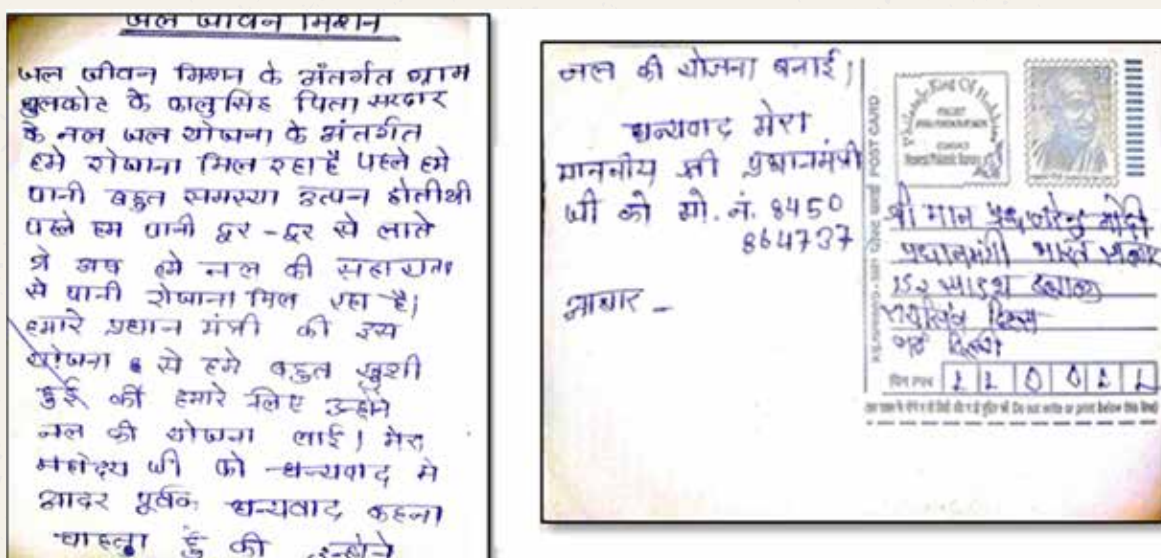 जल जीवन मिशन
जल जीवन मिशन के अंतर्गत ग्राम
धुलकोट के कालुसिह पिता सरदार
के नल जल योजना के अंतर्गत
हमे रोजाना मिल रहा है पहले हमे
पानी बहुत समस्या उत्पन होतीथी
पहले हम पानी दूर-दूर से लाते
थे अब हमे नल की सहायता
से पानी रोजाना मिल रहा है।
हमारे प्रधान मंत्री की इस
योजना से हमे बहुत खुशी
हुई की हमारे लिए उन्होने
नल की योजना लाई। मेरा
महोदय जी को धन्यवाद मे
आदर पूर्वक धन्यवाद कहना
चाहता हुं की उन्होने
जल की योजना बनाई।
धन्यवाद मेरा
माननीय श्री प्रधानमंत्री
जी को मो. नं. 8450
864737
आभार -
POST CARD
श्री मान नरेन्द्र मोदी
प्रधानमंत्री भारत सरकार
नई दिल्ली
पिन
110011
Do not write or print below this line